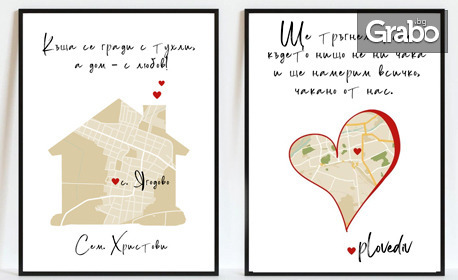 Къща се гради с тухли,
а дом - с любов!
с. Ягодово
Сем. Христови
Ще тръгнем
където нищо не ни чака
и ще намерим всичко,
чакано от нас.
plovediv
Grabo.bg